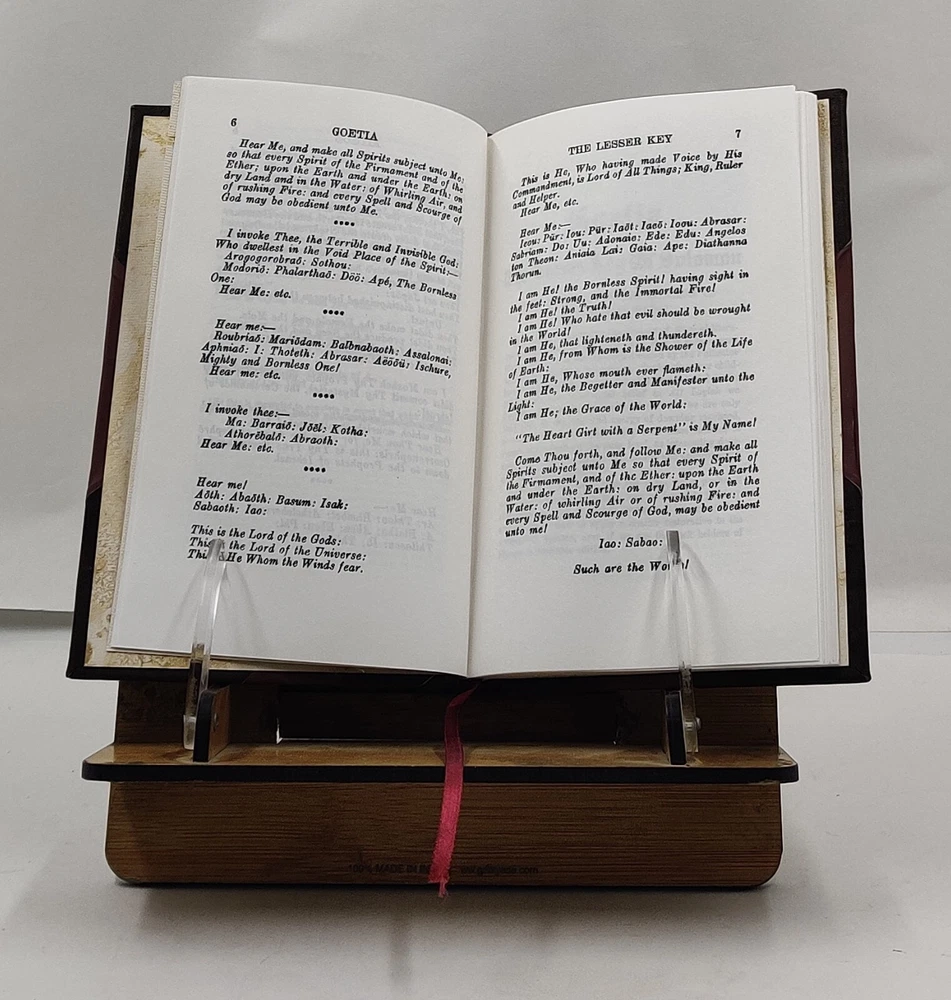 6
GOETIA
Hear Me, and make all Spirits subject unto Me:
so that every Spirit of the Firmament and of the
Ether; upon the Earth and under the Earth: on
dry Land and in the Water: of Whirling Air, and
of rushing Fire: and every Spell and Scourge of
God may be obedient unto Me.
••••
I invoke Thee, the Terrible and Invisible God:
Who dwellest in the Void Place of the Spirit:—
Arogogorobraō: Sothou:
Modoriō: Phalarthaō: Döö: Apé, The Bornless
One:
Hear Me: etc.
••••
Hear me:—
Roubriaō: Mariōdam: Balbnabaoth: Assalonai:
Aphniaō: I: Thoteth: Abrasar: Aëōōü: Ischure,
Mighty and Bornless One!
Hear me: etc.
••••
I invoke thee:—
Ma: Barraiō: Jōēl: Kotha:
Athorēbalō: Abraoth:
Hear Me: etc.
••••
Hear me!
Aōth: Abaōth: Basum: Isak:
Sabaoth: Iao:
This is the Lord of the Gods:
This is the Lord of the Universe:
This is He Whom the Winds fear.
THE LESSER KEY
7
This is He, Who having made Voice by His
Commandment, is Lord of All Things; King, Ruler
and Helper.
Hear Me, etc.
Hear Me:—
Ieou: Pür: Iou: Pür: Iaōt: Iaeō: Ioou: Abrasar:
Sabriam: Do: Uu: Adonaie: Ede: Edu: Angelos
ton Theon: Aniaia Lai: Gaia: Ape: Diathanna
Thorun.
I am He! the Bornless Spirit! having sight in
the feet: Strong, and the Immortal Fire!
I am He! the Truth!
I am He! Who hate that evil should be wrought
in the World!
I am He, that lighteneth and thundereth.
I am He, from Whom is the Shower of the Life
of Earth:
I am He, Whose mouth ever flameth:
I am He, the Begetter and Manifester unto the
Light:
I am He; the Grace of the World:
"The Heart Girt with a Serpent" is My Name!
Come Thou forth, and follow Me: and make all
Spirits subject unto Me so that every Spirit of
the Firmament, and of the Ether: upon the Earth
and under the Earth: on dry Land, or in the
Water: of whirling Air or of rushing Fire: and
every Spell and Scourge of God, may be obedient
unto me!
Iao: Sabao:
Such are the Words!
100% MADE IN